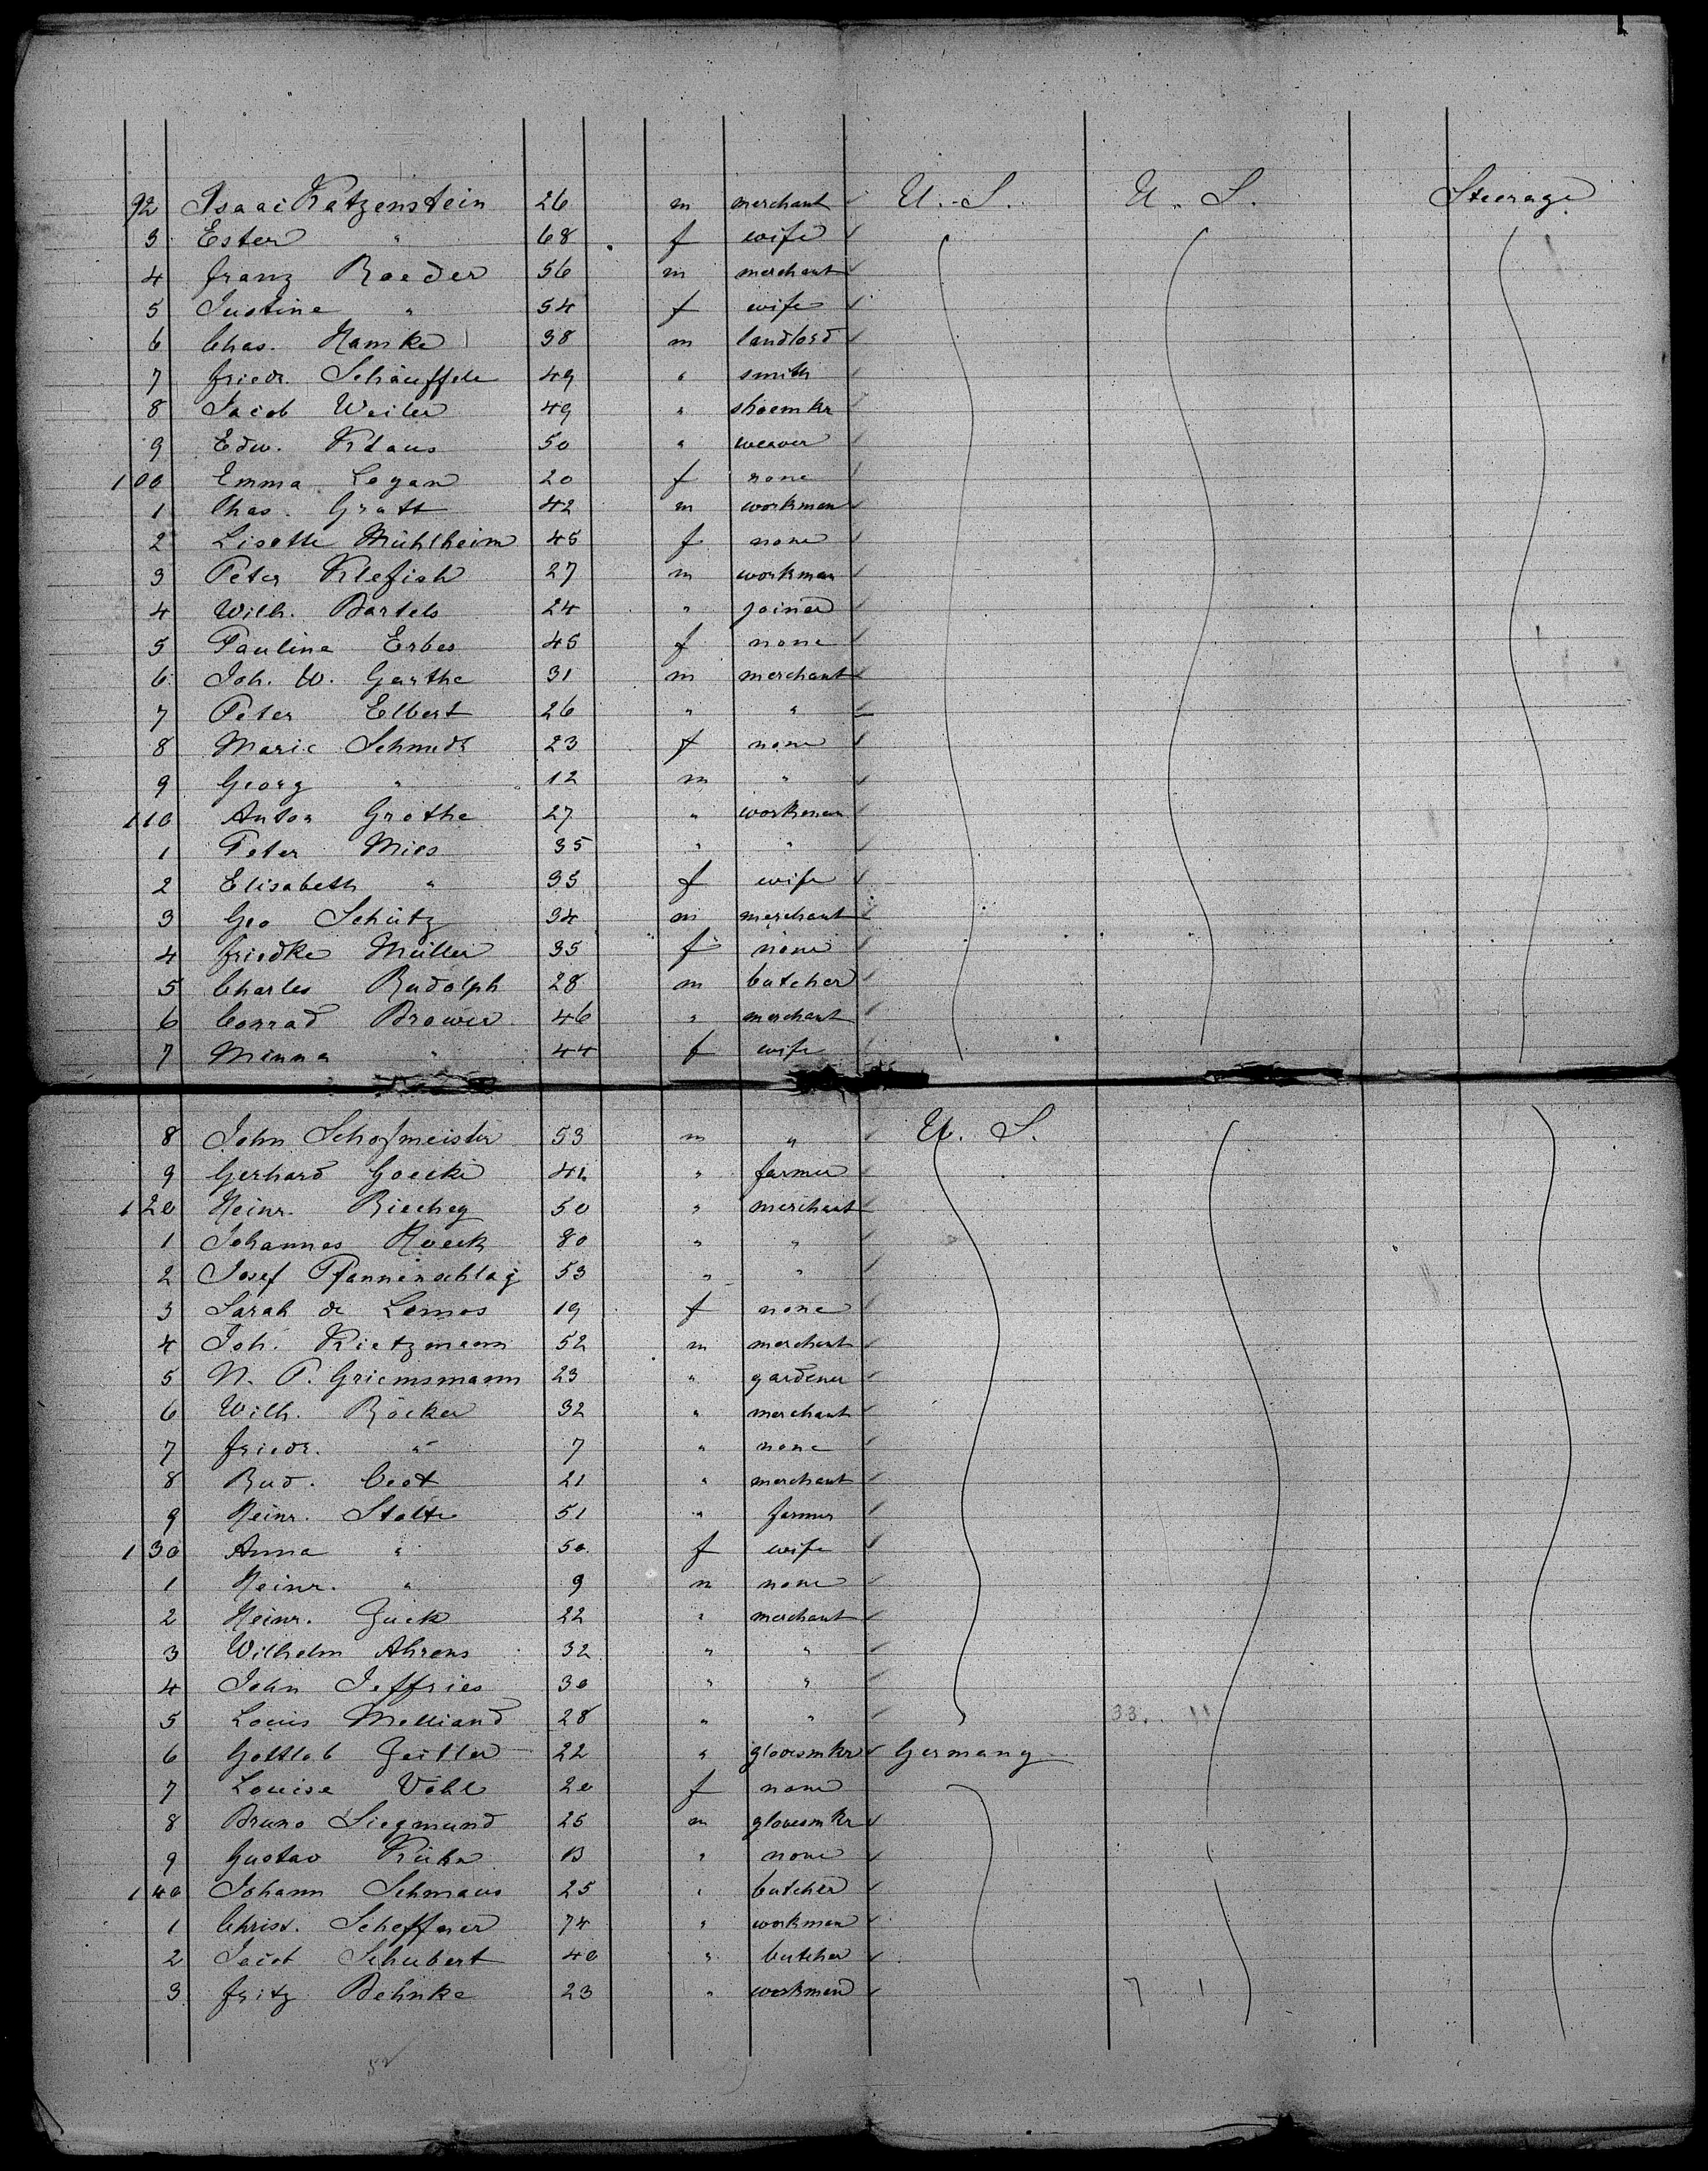 92 Isaac Katzenstein 26 m merchant U.S. U.S. Steerage
3 Ester " 68 f wife
4 Franz Roeder 56 m merchant
5 Justine " 54 f wife
6 Chas. Hamke 38 m landlord
7 Friedr. Schäuffele 49 " smith
8 Jacob Weiler 49 " shoemkr
9 Edw. Klaus 50 " weaver
100 Emma Logan 20 f none
1 Chas. Gratt 42 m workman
2 Lisette Mühlheim 45 f none
3 Peter Klefish 27 m workman
4 Wilh. Bartels 24 " joiner
5 Pauline Erbes 45 f none
6 Joh. W. Garthe 31 m merchant
7 Peter Elbert 26 " "
8 Marie Schmidt 23 f none
9 Georg " 12 m "
110 Anton Grothe 27 " workman
1 Peter Mies 35 " "
2 Elisabeth " 35 f wife
3 Geo Schütz 34 m merchant
4 Friedke Müller 35 f none
5 Charles Rudolph 28 m butcher
6 Conrad Brower 46 " merchant
7 Minna " 44 f wife
8 John Schofmeister 53 m " U.S.
9 Gerhard Goecke 41 " farmer
120 Heinr. Riechey 50 " merchant
1 Johannes Hoeck 80 " "
2 Josef Pfannenschlag 53 " "
3 Sarah de Lemos 19 f none
4 Joh. Kietzmann 52 m merchant
5 N. P. Griemsmann 23 " gardener
6 Wilh. Röcker 32 " merchant
7 Friedr. " 7 " none
8 Rud. 21 " merchant
9 Heinr. Stolte 51 " farmer
130 Anna " 50 f wife
1 Heinr. " 9 m none
2 Heinr. Zuck 22 " merchant
3 Wilhelm Ahrens 32 " "
4 John Jeffries 30 " "
5 Louis Melliand 28 " " 33. 11
6 Gottlob Zeitler 22 " glovesmkr Germany
7 Louise Vohl 20 f none
8 Bruno Siegmund 25 m glovesmkr
9 Gustav Kühn 13 " none
140 Johann Schmaus 25 " butcher
1 Christ. Scheffner 74 " workman
2 Jacob Schubert 40 " butcher
3 Fritz Behnke 23 " workman 7 1
52